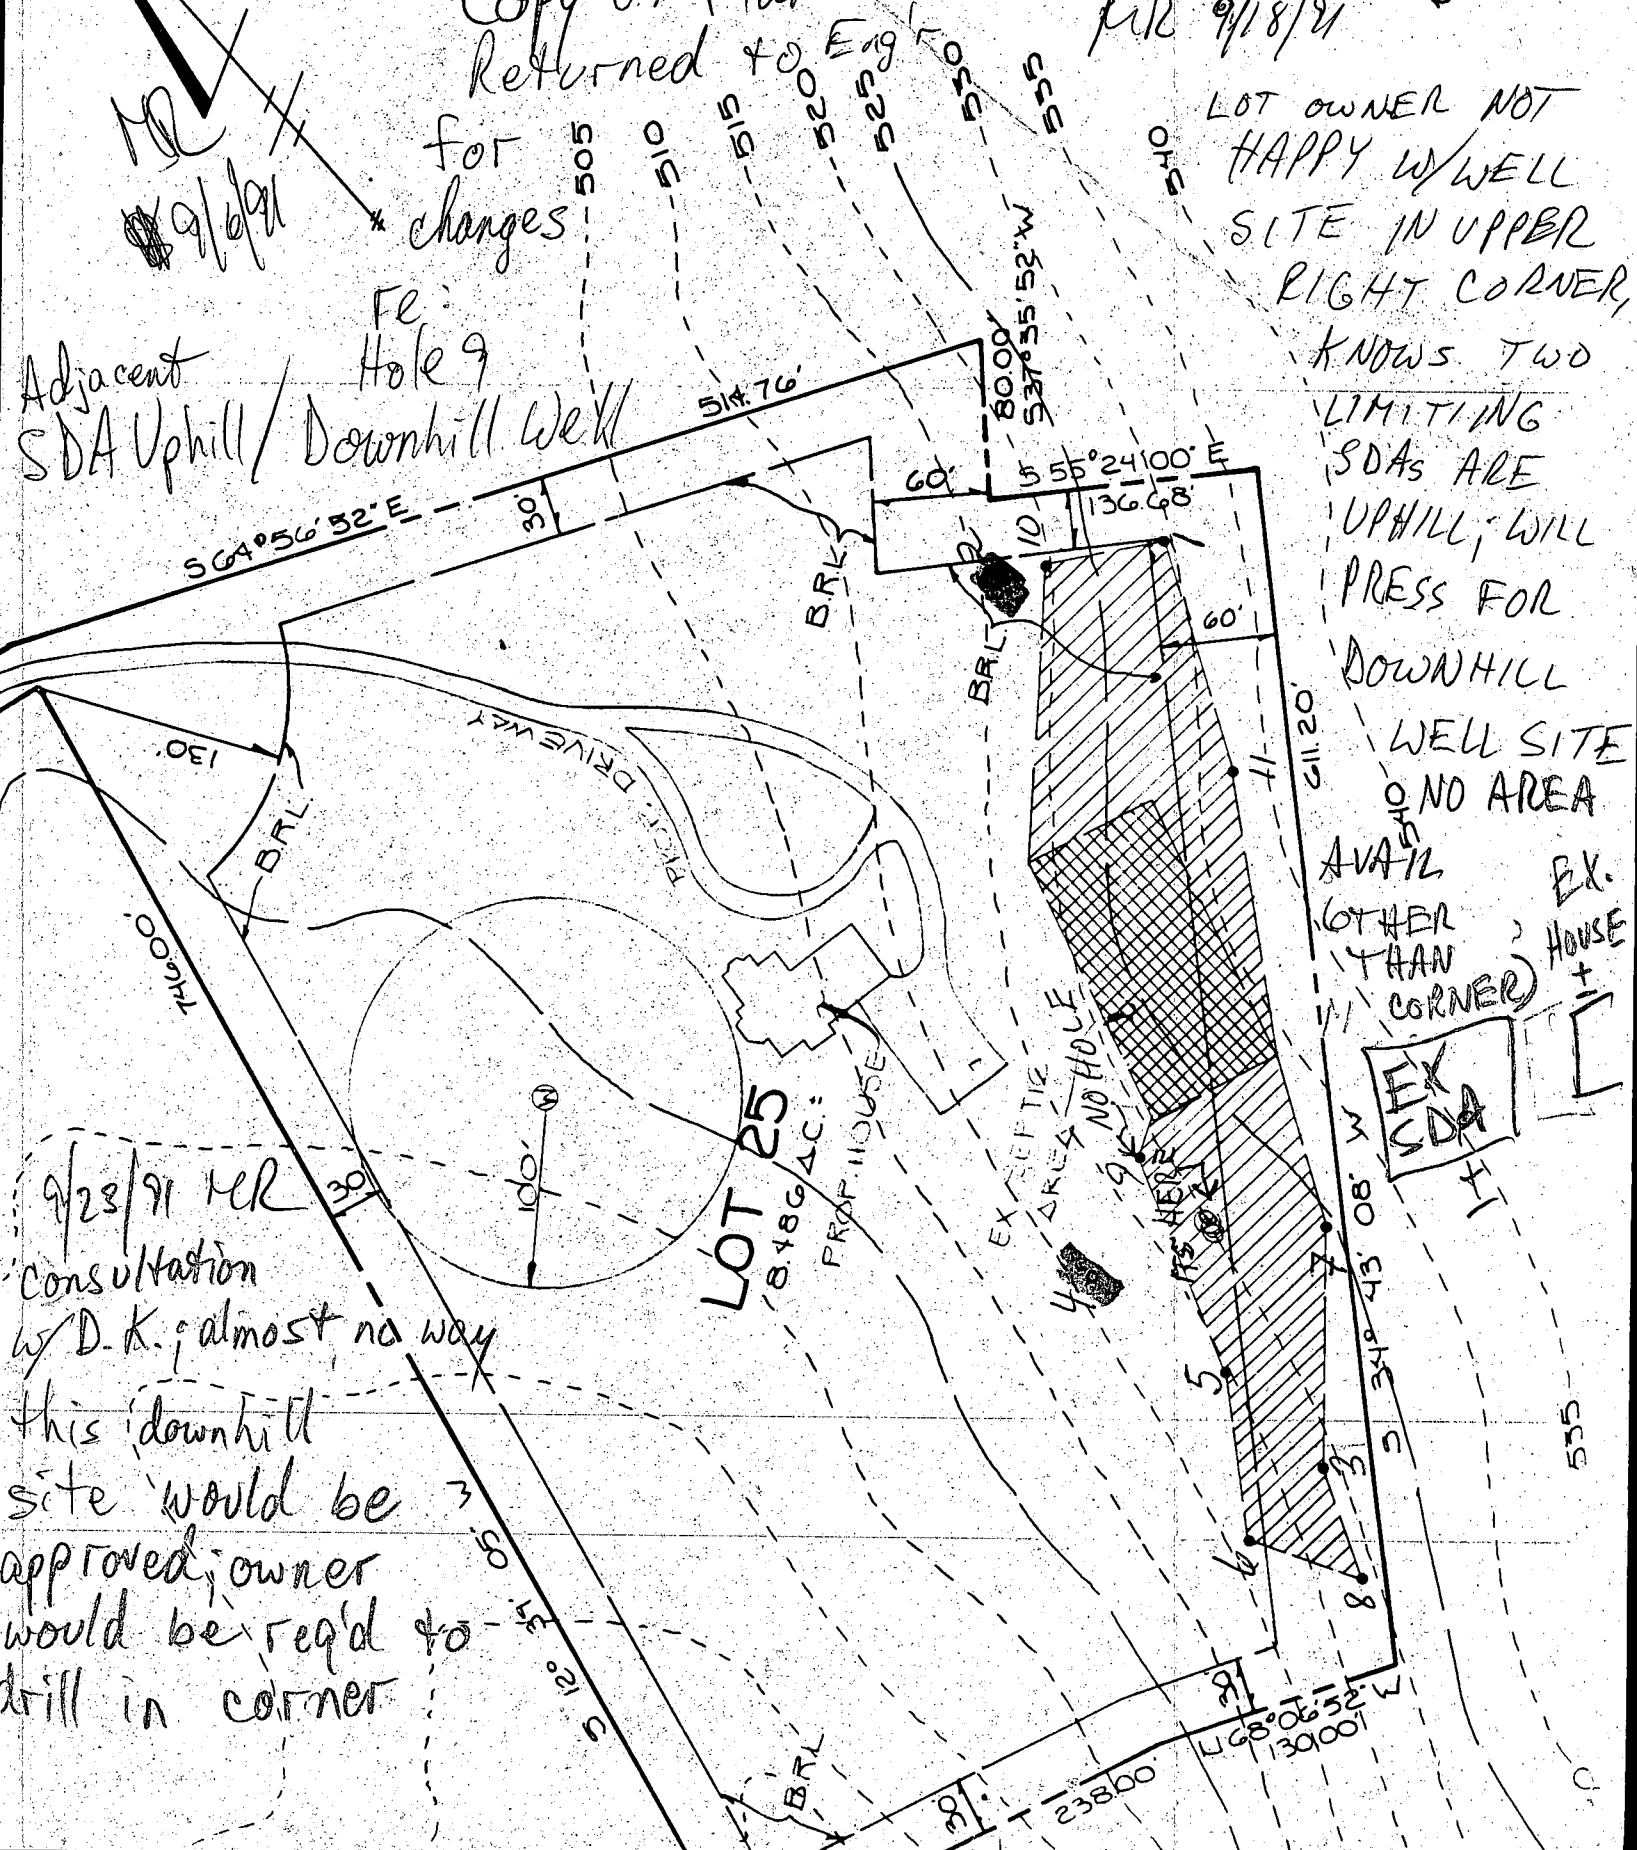 Copy of Plan
Returned to Eng'r
for
changes
re:
Hole 9
MR
9/6/91
Adjacent
SDA Uphill / Downhill Well
MR 9/18/91
LOT OWNER NOT
HAPPY W/WELL
SITE IN UPPER
RIGHT CORNER,
KNOWS TWO
LIMITIING
SDAs ARE
UPHILL; WILL
PRESS FOR
DOWNHILL
WELL SITE
NO AREA
AVAIL
OTHER
THAN
CORNER)
EX.
HOUSE
±
EX
SDA
505
510
515
520
525
530
535
540
540
535
S 64° 56' 52" E
514.76'
80.00'
S 37° 35' 52" W
S 55° 24' 00" E
136.68'
60'
30'
10
2
1
60'
BRL
BRL
611.20'
11
130'
BRL
PROP. DRIVEWAY
746.00'
100'
W
LOT 25
8.486 AC.±
PROP. HOUSE
EX SEPTIC
AREA
NO HOLE
9
HERE
4
7
5
3
6
8
S 34° 43' 08" W
30'
9/23/91 MR
Consultation
w/ D.K.; almost no way
this downhill
site would be
approved; owner
would be req'd to
drill in corner
BRL
30'
30'
238.00'
N 68° 06' 52" W
130.00'